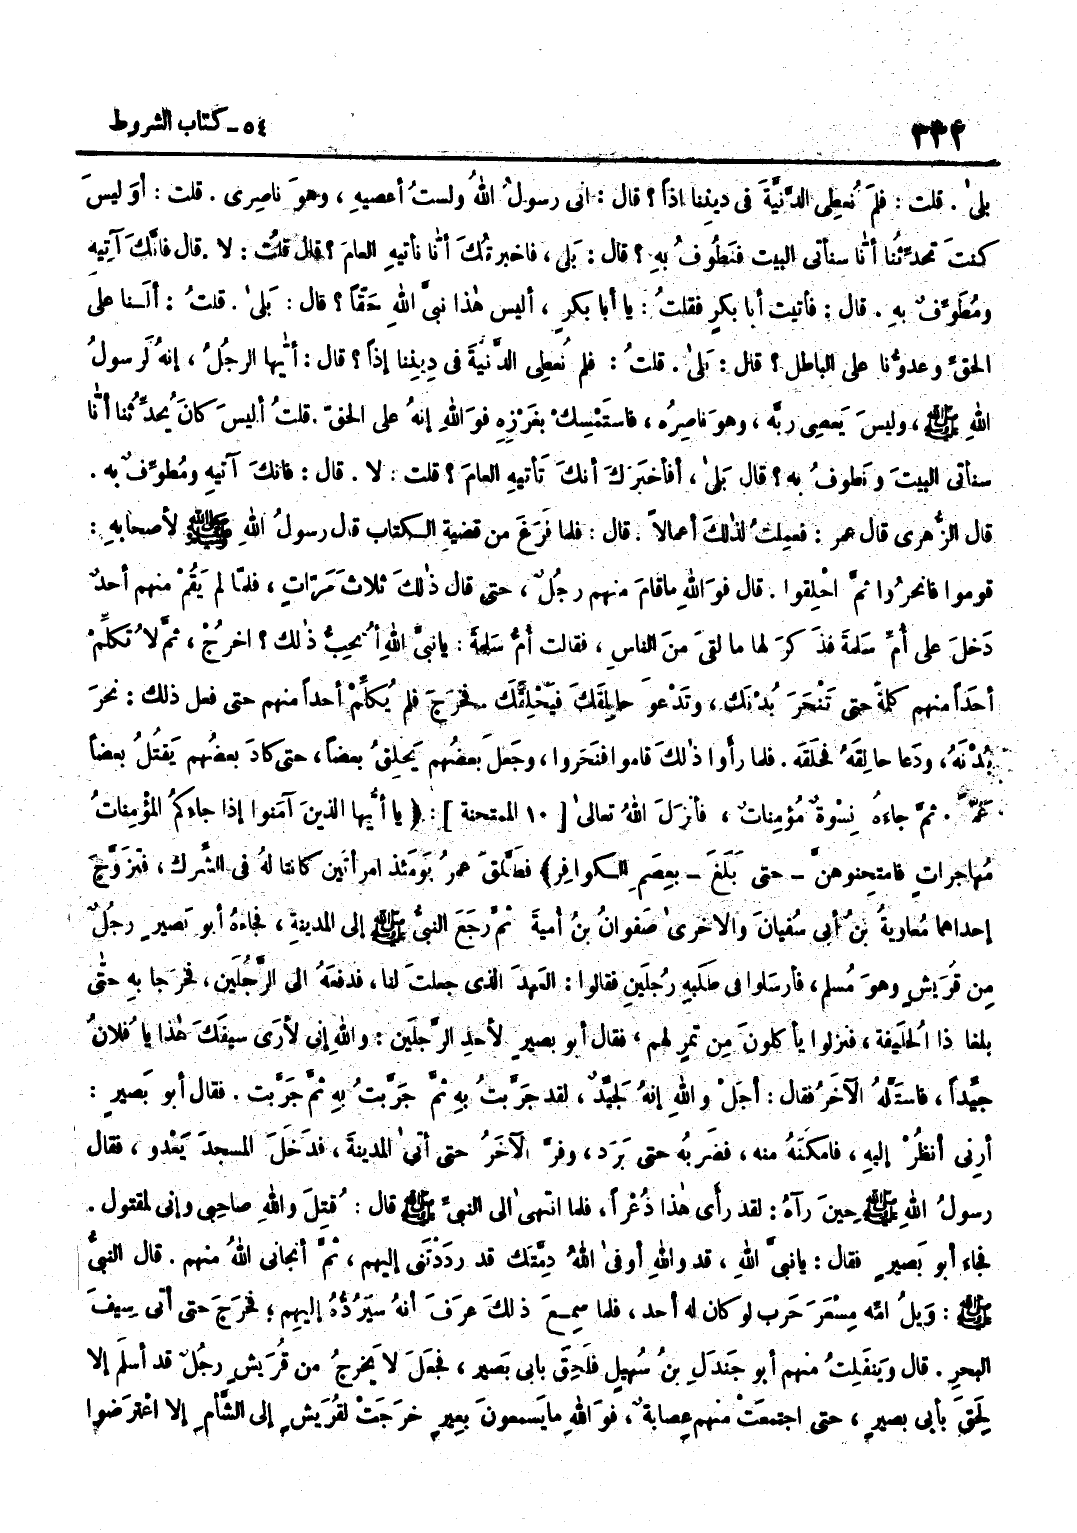 ٣٣٢ ٥٤ـ كتاب الشروط
بلىٰ . قلت : فلمَ نُعطِى الدَّنيَّةَ فى دِيننا اذاً ؟ قال : انى رسولُ اللهُ ولستُ أعصيهِ ، وهوَ ناصِرى . قلت : أوَ ليسَ
كنتَ تحدِّثُنا أنّا سنأتى البيت فنَطُوفُ بهِ ؟ قال : بَلى ، فاخبرتُكَ أنّا نأتيهِ العامَ ؟ قال قلتُ : لا . قال فانَّكَ آتِيهِ
ومُطَّوِّفٌ بهِ . قال : فأتيت أبا بكرٍ فقلتُ : يا أبا بكرٍ ، أليس هٰذا نبىَّ اللهِ حَقّاً ؟ قال : بَلىٰ . قلتُ : ألَسنا على
الحقِّ وعدوُّنا على الباطل ؟ قال : بَلىٰ . قلتُ : فلم نُعطِى الدَّنيَّةَ فى دِيننا إذاً ؟ قال : أيُّها الرجلُ ، إنهُ لَرسولُ
اللهِ ﷺ ، وليسَ يَعصِى ربَّه ، وهوَ ناصِرُه ، فاستَمْسِكْ بغَرْزِهِ فوَاللهِ إنهُ على الحقّ . قلتُ أليسَ كانَ يُحدِّثُنا أنّا
سنأتى البيتَ ونَطوفُ به ؟ قال بَلىٰ ، أفأخبَرَكَ أنكَ تَأتيهِ العامَ ؟ قلت : لا . قال : فانكَ آتيهِ ومُطوِّفٌ به .
قال الزُّهرى قال عمر : فعمِلتُ لذٰلكَ أعمالاً . قال : فلما فَرَغَ من قضيةِ الكتاب قال رسولُ اللهِ ﷺ لأصحابهِ :
قوموا فانحرُوا ثمَّ احْلِقوا . قال فوَاللهِ ماقامَ منهم رجُلٌ ، حتى قال ذٰلكَ ثلاثَ مَرّاتٍ ، فلمّا لم يَقُمْ منهم أحدٌ
دَخلَ على أُمِّ سَلمةَ فذَكرَ لها ما لقىَ منَ الناسِ ، فقالت أُمُّ سَلمةَ : يانبىَّ اللهِ أتُحِبُّ ذٰلك ؟ اخرُجْ ، ثمَّ لا تُكلِّمْ
أحَداً منهم كلمةً حتى تَنْحَرَ بُدْنَكَ ، وتَدْعوَ حالِقَكَ فيَحْلِقَكَ . فخَرَجَ فلم يُكلِّمْ أحداً منهم حتى فعل ذلك : نحَرَ
بُدْنَهُ ، ودَعا حالِقَهُ فحَلَقَه . فلما رأَوا ذٰلكَ قاموا فنَحَروا ، وجَعلَ بعضُهم يَحلِقُ بعضاً ، حتى كادَ بعضُهم يَقتُلُ بعضاً
غمّاً . ثمَّ جاءهُ نِسْوةٌ مُؤمِناتٌ ، فأنزَلَ اللهُ تعالىٰ [ ١٠ الممتحنة ] : ﴿ يا أيُّها الذينَ آمَنوا إذا جاءكمُ المؤمِناتُ
مُهاجراتٍ فامتحِنوهنَّ ــ حتى بَلَغَ ــ بعِصَمِ الكوافِرِ ﴾ فطَلَّقَ عمرُ يومَئذ امرأتَين كانتا لهُ فى الشِّرك ، فتزوَّجَ
إحداهما مُعاويةُ بنُ أبى سُفيانَ والاخرىٰ صَفوانُ بنُ أميةَ ثمَّ رجَعَ النبىُّ ﷺ إلى المدينةِ ، فجاءهُ أبو بَصيرٍ رجلٌ
مِن قُرَيشٍ وهوَ مُسلم ، فأرسَلوا فى طلَبهِ رجُلَينِ فقالوا : العهدَ الذى جعلتَ لنا ، فدفعَهُ الى الرَّجُلَين ، فخرَجا بهِ حتّى
بلغا ذا الحُلَيفة ، فنزلوا يأكلونَ مِن تمرٍ لهم ، فقال أبو بصيرٍ لأحدِ الرَّجلَين : واللهِ إنى لأرَى سيفَكَ هٰذا يا فُلانُ
جيَّداً ، فاستَلَّهُ الآخَرُ فقال : أجَلْ واللهِ إنهُ لَجيِّدٌ ، لقد جَرَّبتُ بهِ ثمَّ جَرَّبتُ بهِ ثمَّ جَرَّبت . فقال أبو بَصيرٍ :
أرِنى أنظُرْ إليهِ ، فامكنَهُ منه ، فضَربهُ حتى بَرَد ، وفرَّ الآخَرُ حتى أتىٰ المدينةَ ، فدَخَلَ المسجدَ يَعْدو ، فقال
رسولُ اللهِ ﷺ حِينَ رآهُ : لقد رأى هٰذا ذُعْراً ، فلما انتهىٰ الى النبىِّ ﷺ قال : قُتِلَ واللهِ صاحِبى وإنى لمقتول .
فجاء أبو بَصيرٍ فقال : يانبىَّ اللهِ ، قد واللهِ أوفىٰ اللهُ ذِمَّتك قد ردَدْتَنى إليهم ، ثمَّ أنجانى اللهُ منهم . قال النبىُّ
ﷺ : وَيلُ امِّه مِسْعَرَ حَرب لو كان له أحد ، فلما سمِعَ ذلكَ عرَفَ أنهُ سيَرُدُّهُ إليهِم ؛ فخرَجَ حتى أتى سِيفَ
البحرِ . قال ويَنفلِتُ منهم أبو جَندَلِ بنُ سُهيلٍ فلَحِقَ بابى بَصير ، فجعَلَ لا يَخرجُ من قُرَيشٍ رجُلٌ قد أسلَم إلا
لَحِقَ بأبى بصيرٍ ، حتى اجتمعَتْ منهم عِصابةٌ ، فوَاللهِ مايَسمعونَ بعِيرٍ خرَجَتْ لقُرَيشٍ إلى الشَّأمِ إلا اعْترَضوا